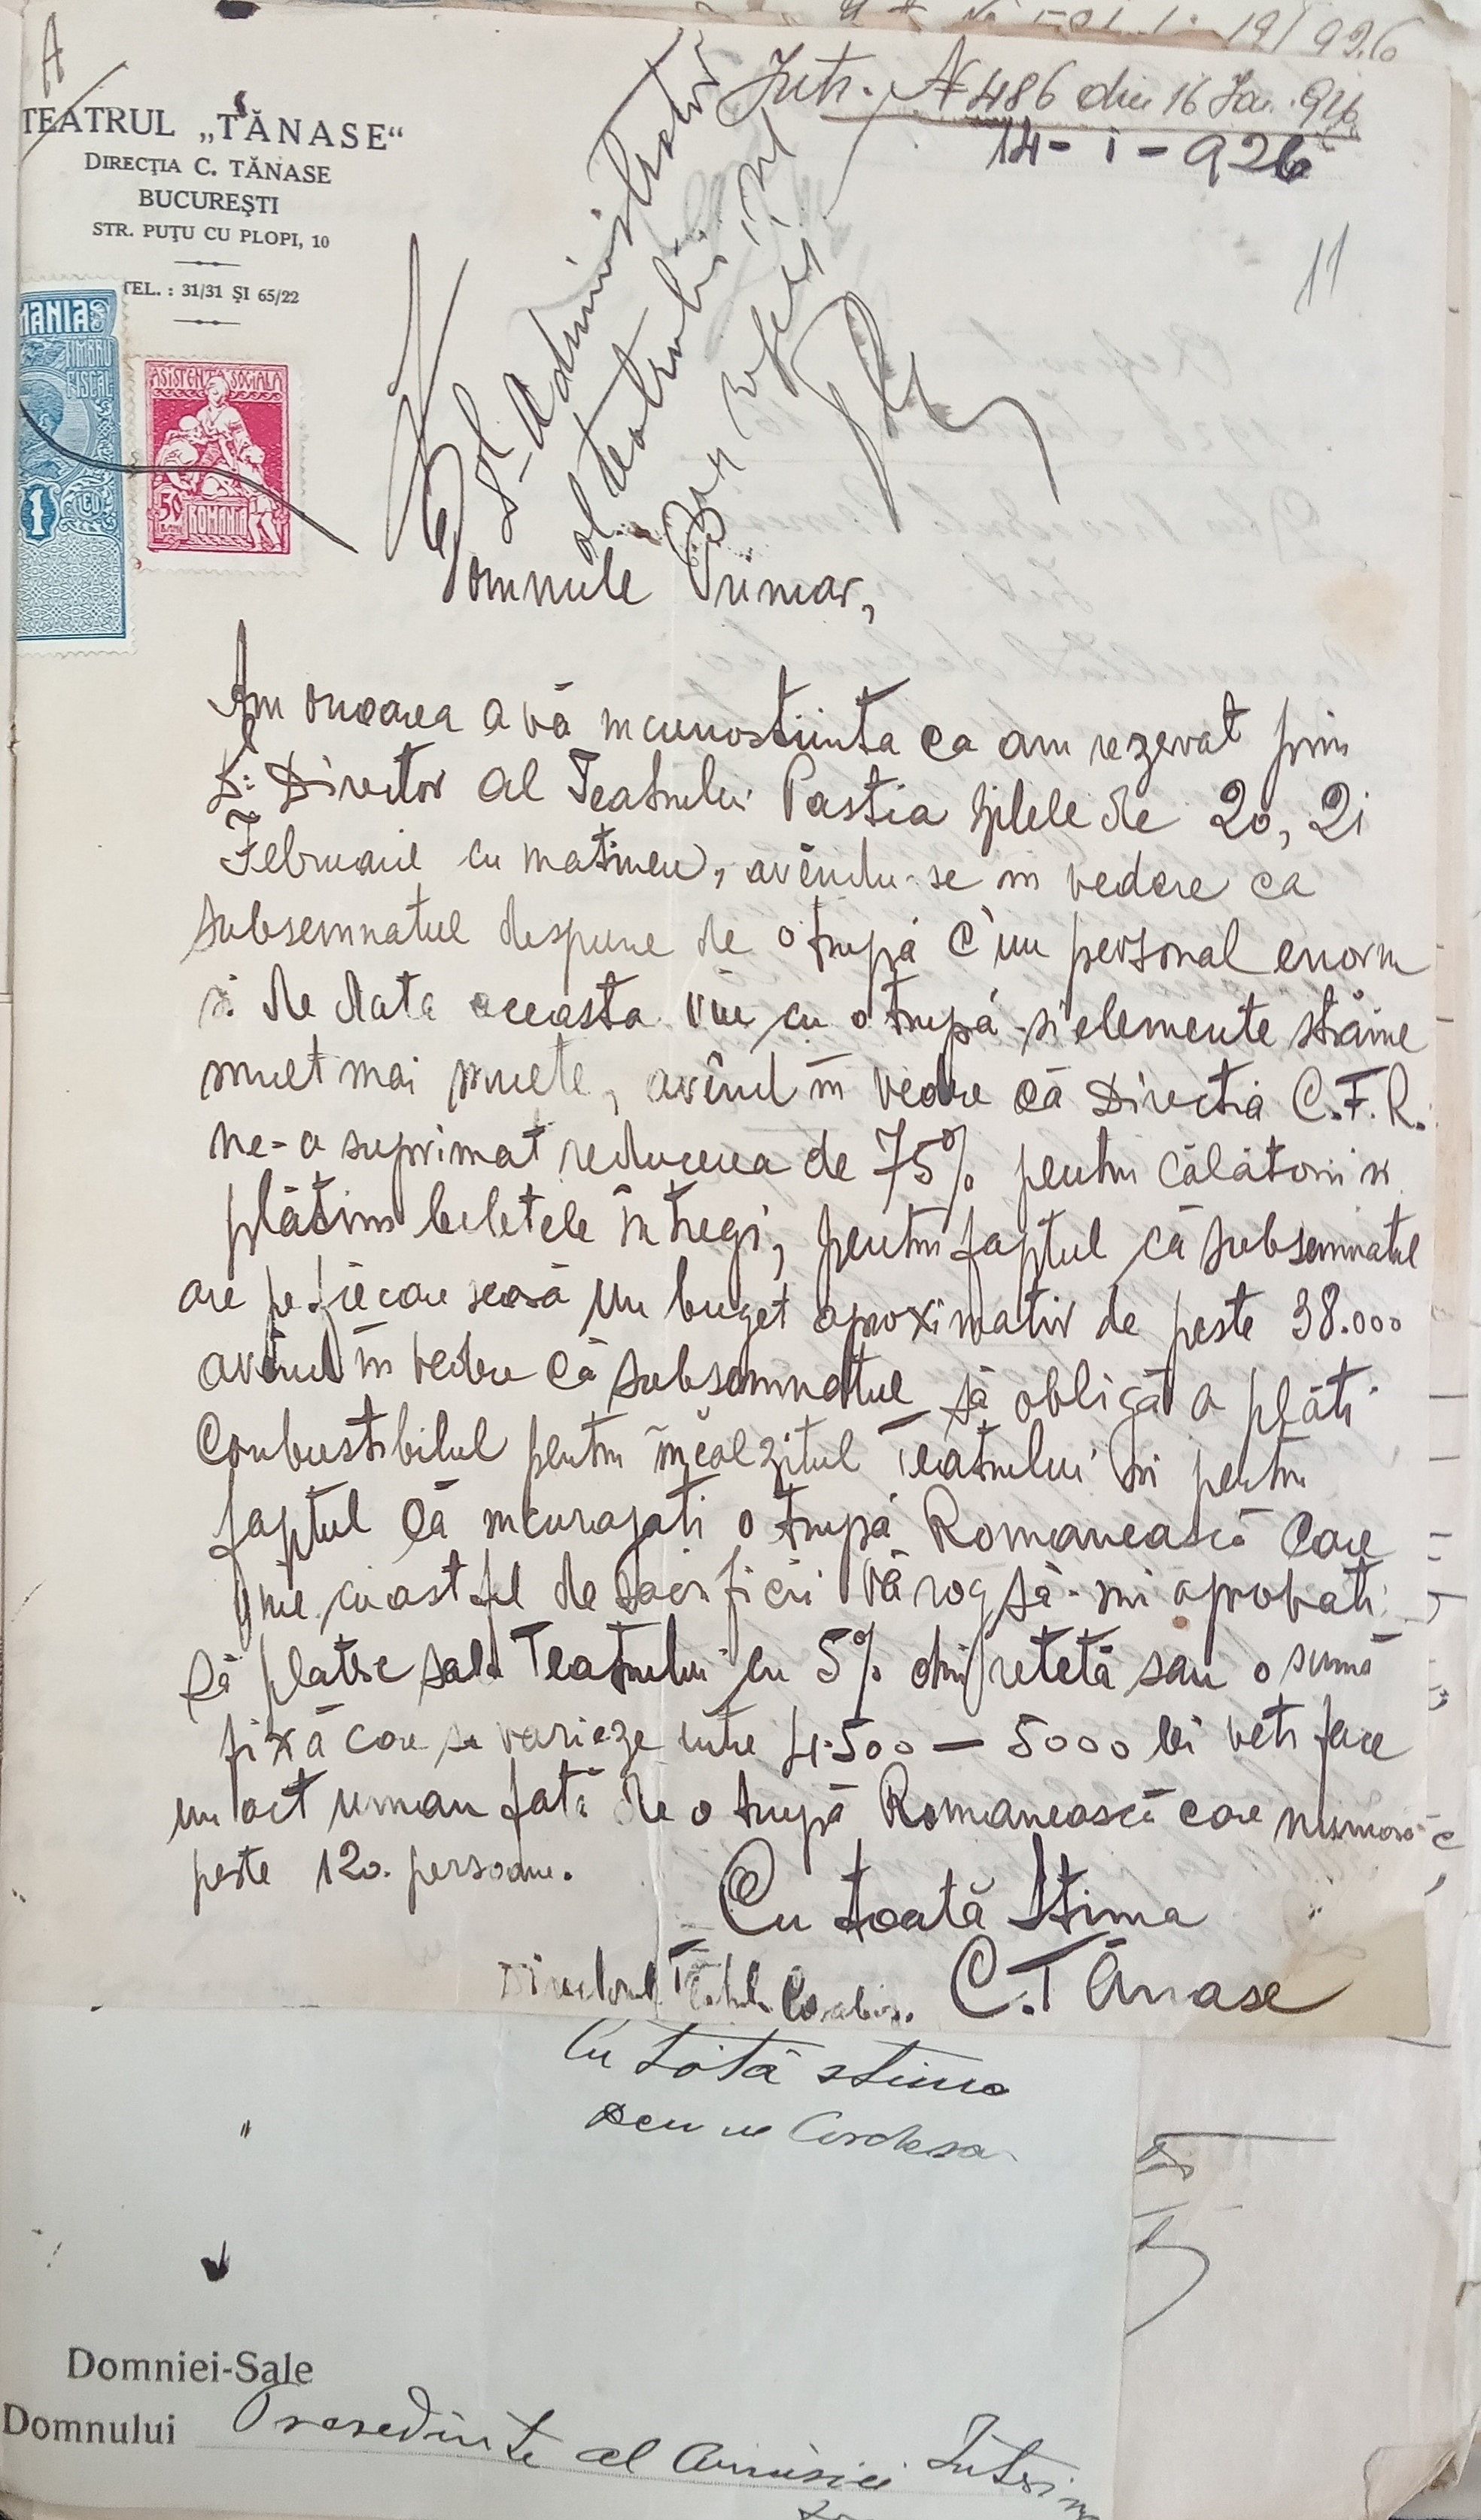 A
Intr. № 486 din 16 Ian. 926
14 - I - 926
11
TEATRUL „TĂNASE“
DIRECŢIA C. TĂNASE
BUCUREŞTI
STR. PUŢU CU PLOPI, 10
TEL. : 31/31 ŞI 65/22
MANIA
TIMBRU
FISCAL
1 LEU
ASISTENŢA SOCIALA
50
ROMANIA
Dl. Administrator
al teatrului
Domnule Primar,
Am onoarea a vă incunostiinta ca am rezervat prin
D. Director al Teatrului Pastia zilele de 20, 21
Februarie cu matineu, avêndu-se in vedere ca
subsemnatul dispune de o trupă c'un personal enorm
si de data aceasta vin cu o trupă si elemente străine
mult mai multe, avênd in vedere că Directia C.F.R.
ne-a suprimat reducerea de 75% pentru călătorii si
plătim biletele intregi, pentru faptul că subsemnatul
are pe fiecare seară un buget aproximativ de peste 38.000
avênd in vedere că subsemnatul să obligă a plăti
combustibilul pentru incălzitul Teatrului si pentru
faptul că incurajati o trupă Romanească care
vine cu astfel de sacrificii vă rog să-mi aprobati
să platesc sala Teatrului cu 5% din retetă sau o sumă
fixă care sa varieze intre 4.500 — 5000 lei veti face
un act uman fată de o trupă Romanească care numără
peste 120. persoane.
Cu toată Stima
Directorul C. TĂnase
Cu totă stima
Domniei-Sale
Domnului Presedinte al Comisiei Interim